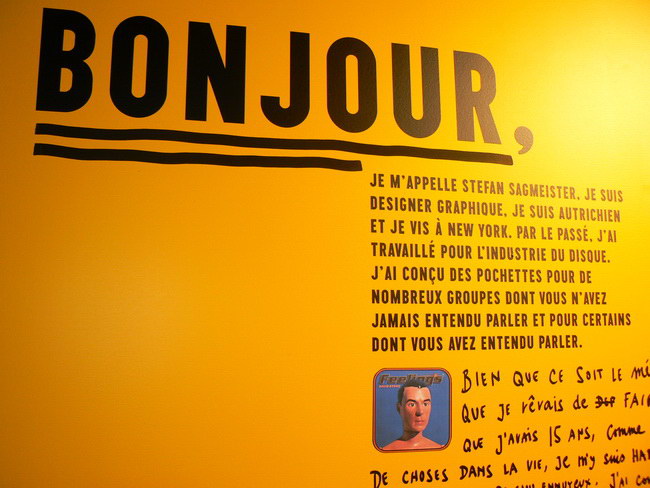 BONJOUR,
JE M'APPELLE STEFAN SAGMEISTER. JE SUIS
DESIGNER GRAPHIQUE, JE SUIS AUTRICHIEN
ET JE VIS À NEW YORK. PAR LE PASSÉ, J'AI
TRAVAILLÉ POUR L'INDUSTRIE DU DISQUE.
J'AI CONÇU DES POCHETTES POUR DE
NOMBREUX GROUPES DONT VOUS N'AVEZ
JAMAIS ENTENDU PARLER ET POUR CERTAINS
DONT VOUS AVEZ ENTENDU PARLER.
Feelings
BIEN QUE CE SOIT LE MÉ
QUE JE RÊVAIS DE FAI
QUE J'AVAIS 15 ANS, COMME
DE CHOSES DANS LA VIE, JE M'Y SUIS HA
ENNUYEUX. J'AI CO